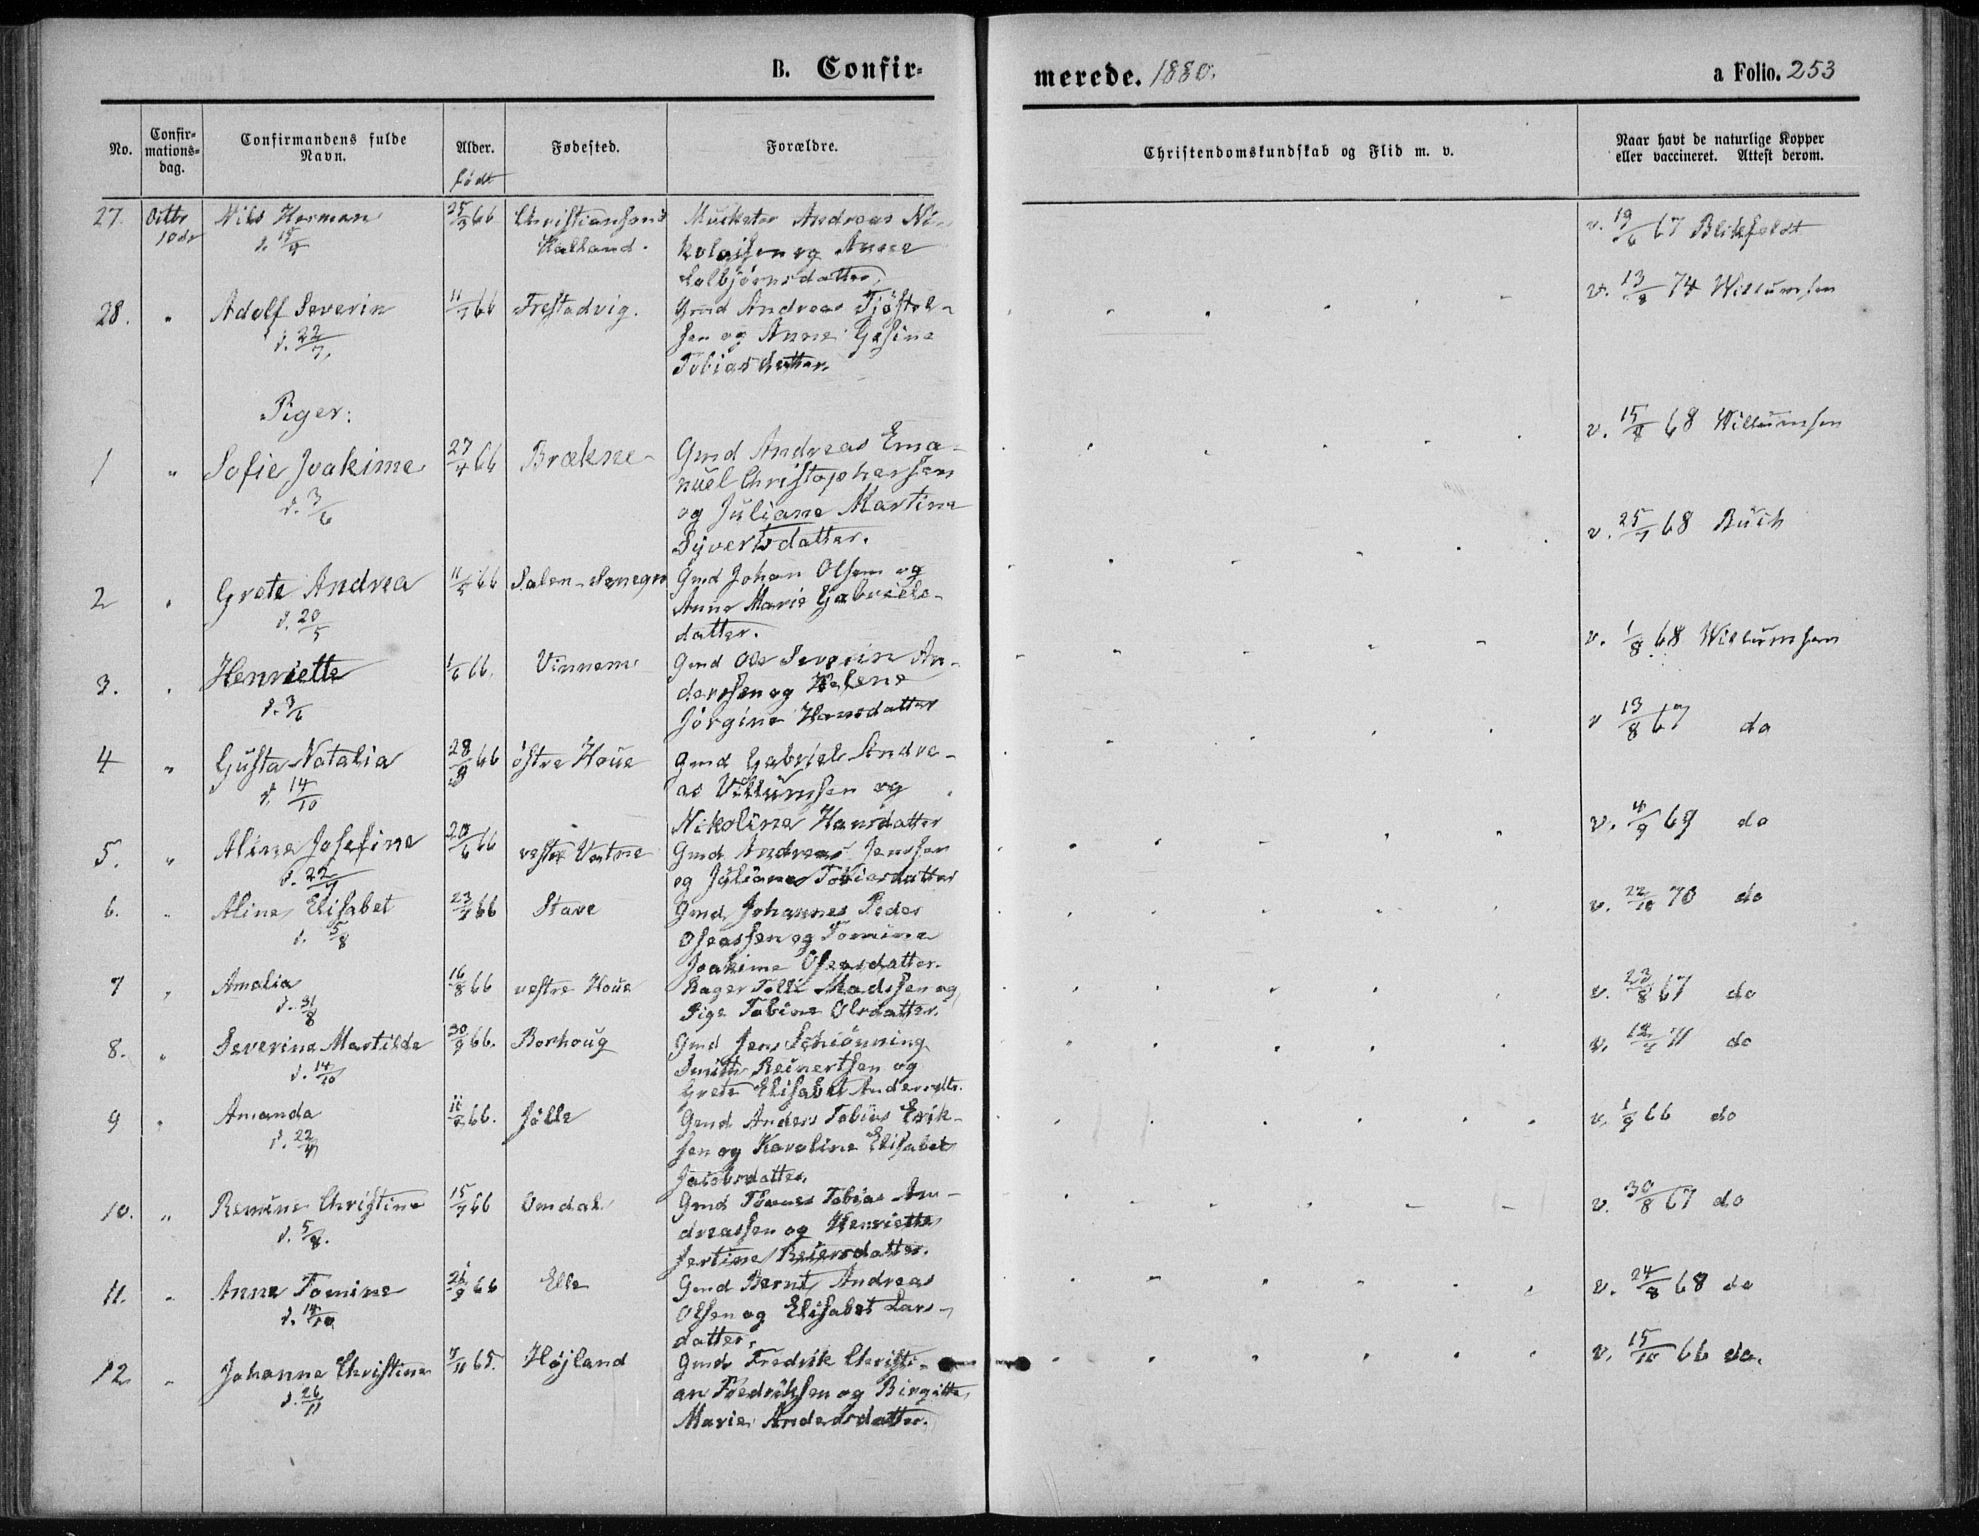 B. Confir-
merede. 1880.
a Folio. 253
No.
Confir-
mations-
dag.
Confirmandens fulde
Navn.
Alder.
født
Fødested.
Forældre.
Christendomskundskab og Flid m. v.
Naar havt de naturlige Kopper
eller vaccineret. Attest derom.
27. Octbr Nils Herman 25/3 66 Christiansand Andreas Ni-
10de d. Halland. kolaisen og Anne
datter
v. 19/6 67 Blikfeldt
28. " Adolf Severin 11/7 66 Frestadvig. Gmd Andreas Tjøstel-
d. 22/7. sen og Anne Gesine
Tobiasdatter.
v. 13/8 74 Willumsen
Piger:
1 " Sofie Joakime 27/4 66 Brækne Gmd Andreas Ema-
d. 3/6 nuel Christophersen
og Juliane Martine
Syvertsdatter.
v. 15/8 68 Willumsen
2 " Grete Andrea 11/5 66 Salen Gmd Johan Olsen og
d. 20/5 Anne Marie Gabriels-
datter.
v. 25/7 68 Buch
3. " Henriette 1/6 66. Vinnem Gmd Ole Severin An-
d. 3/6 derssen og Helene
Jørgine Hansdatter
v. 1/8 68 Willumsen
4 " Gusta Natalia 28/9 66 østre Houe Gmd Gabriel Andre-
d. 14/10 as Villumsen og
Nikoline Hansdatter
v 13/8 67 do
5. " Aline Josefine 20/6 66 vestre Vatne Gmd Andreas Jenssen
d. 22/7 og Juliane Tobiasdatter
v. 4/9 69 do
6. " Aline Elisabet 23/7 66 Stave Gmd Johannes Peder
d. 5/8 Oseassen og Tomine
Joakime Oseasdatter.
v. 22/10 70 do
7 " Amalia 16/8 66 vestre Houe Tolli Madssen og
d. 31/8 Pige Tobine Olsdatter.
v. 23/8 67 do
8. " Severine Martilde 30/9 66. Borhoug Gmd Jens Schiønning
d. 14/10 Smith Reinertsen og
Grete Elisabet Andersdtr.
v. 71 do
9 " Amanda 66. Jølle Gmd Anders Tobias Erik-
d. 22/4 sen og Karoline Elisabet
Jacobsdatter.
v. 1/9 66 do
10. " Christine 15/7 66 Omdal Gmd Tønnes Tobias An-
d. 5/8. dreassen og Henriette
Jertine Reiersdatter.
v. 30/8 67 do
11. " Anne Tomine 21/9 66 Elle Gmd Bernt Andreas
d. 14/10 Olsen og Elisabet Lars-
datter.
v. 24/8 68 do
12 " Johanne Christine 7/11 65. Højland Gmd Fredrik Christi-
d. 26/11 an Fredriksen og Birgitte
Marie Andersdatter.
v. 15/10 66 do.